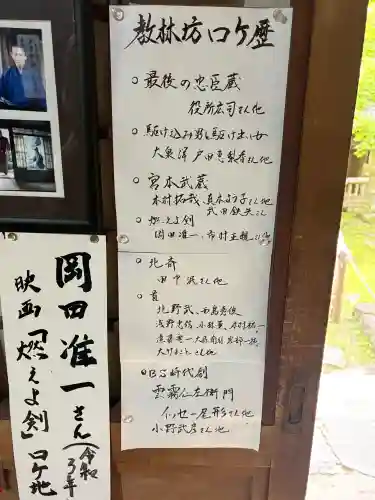 教林坊ロケ歴
○ 最後の忠臣蔵
役所広司さん他
○ 駆け込み女と駆け出し男
大泉洋 戸田恵梨香さん他
○ 宮本武蔵
木村拓哉、真木よう子さん他
武田鉄矢さん
○ 燃えよ剣
岡田准一、市村正親さん他
○ 北斎
田中泯さん他
○ 首
北野武、西島秀俊
浅野忠信、小林薫、木村祐一
遠藤憲一
大竹まこと、さん他
○ BS時代劇
雲霧仁左衛門
イッセー尾形さん他
小野武彦さん他
岡田准一さん(令和3年
映画「燃えよ剣」ロケ地